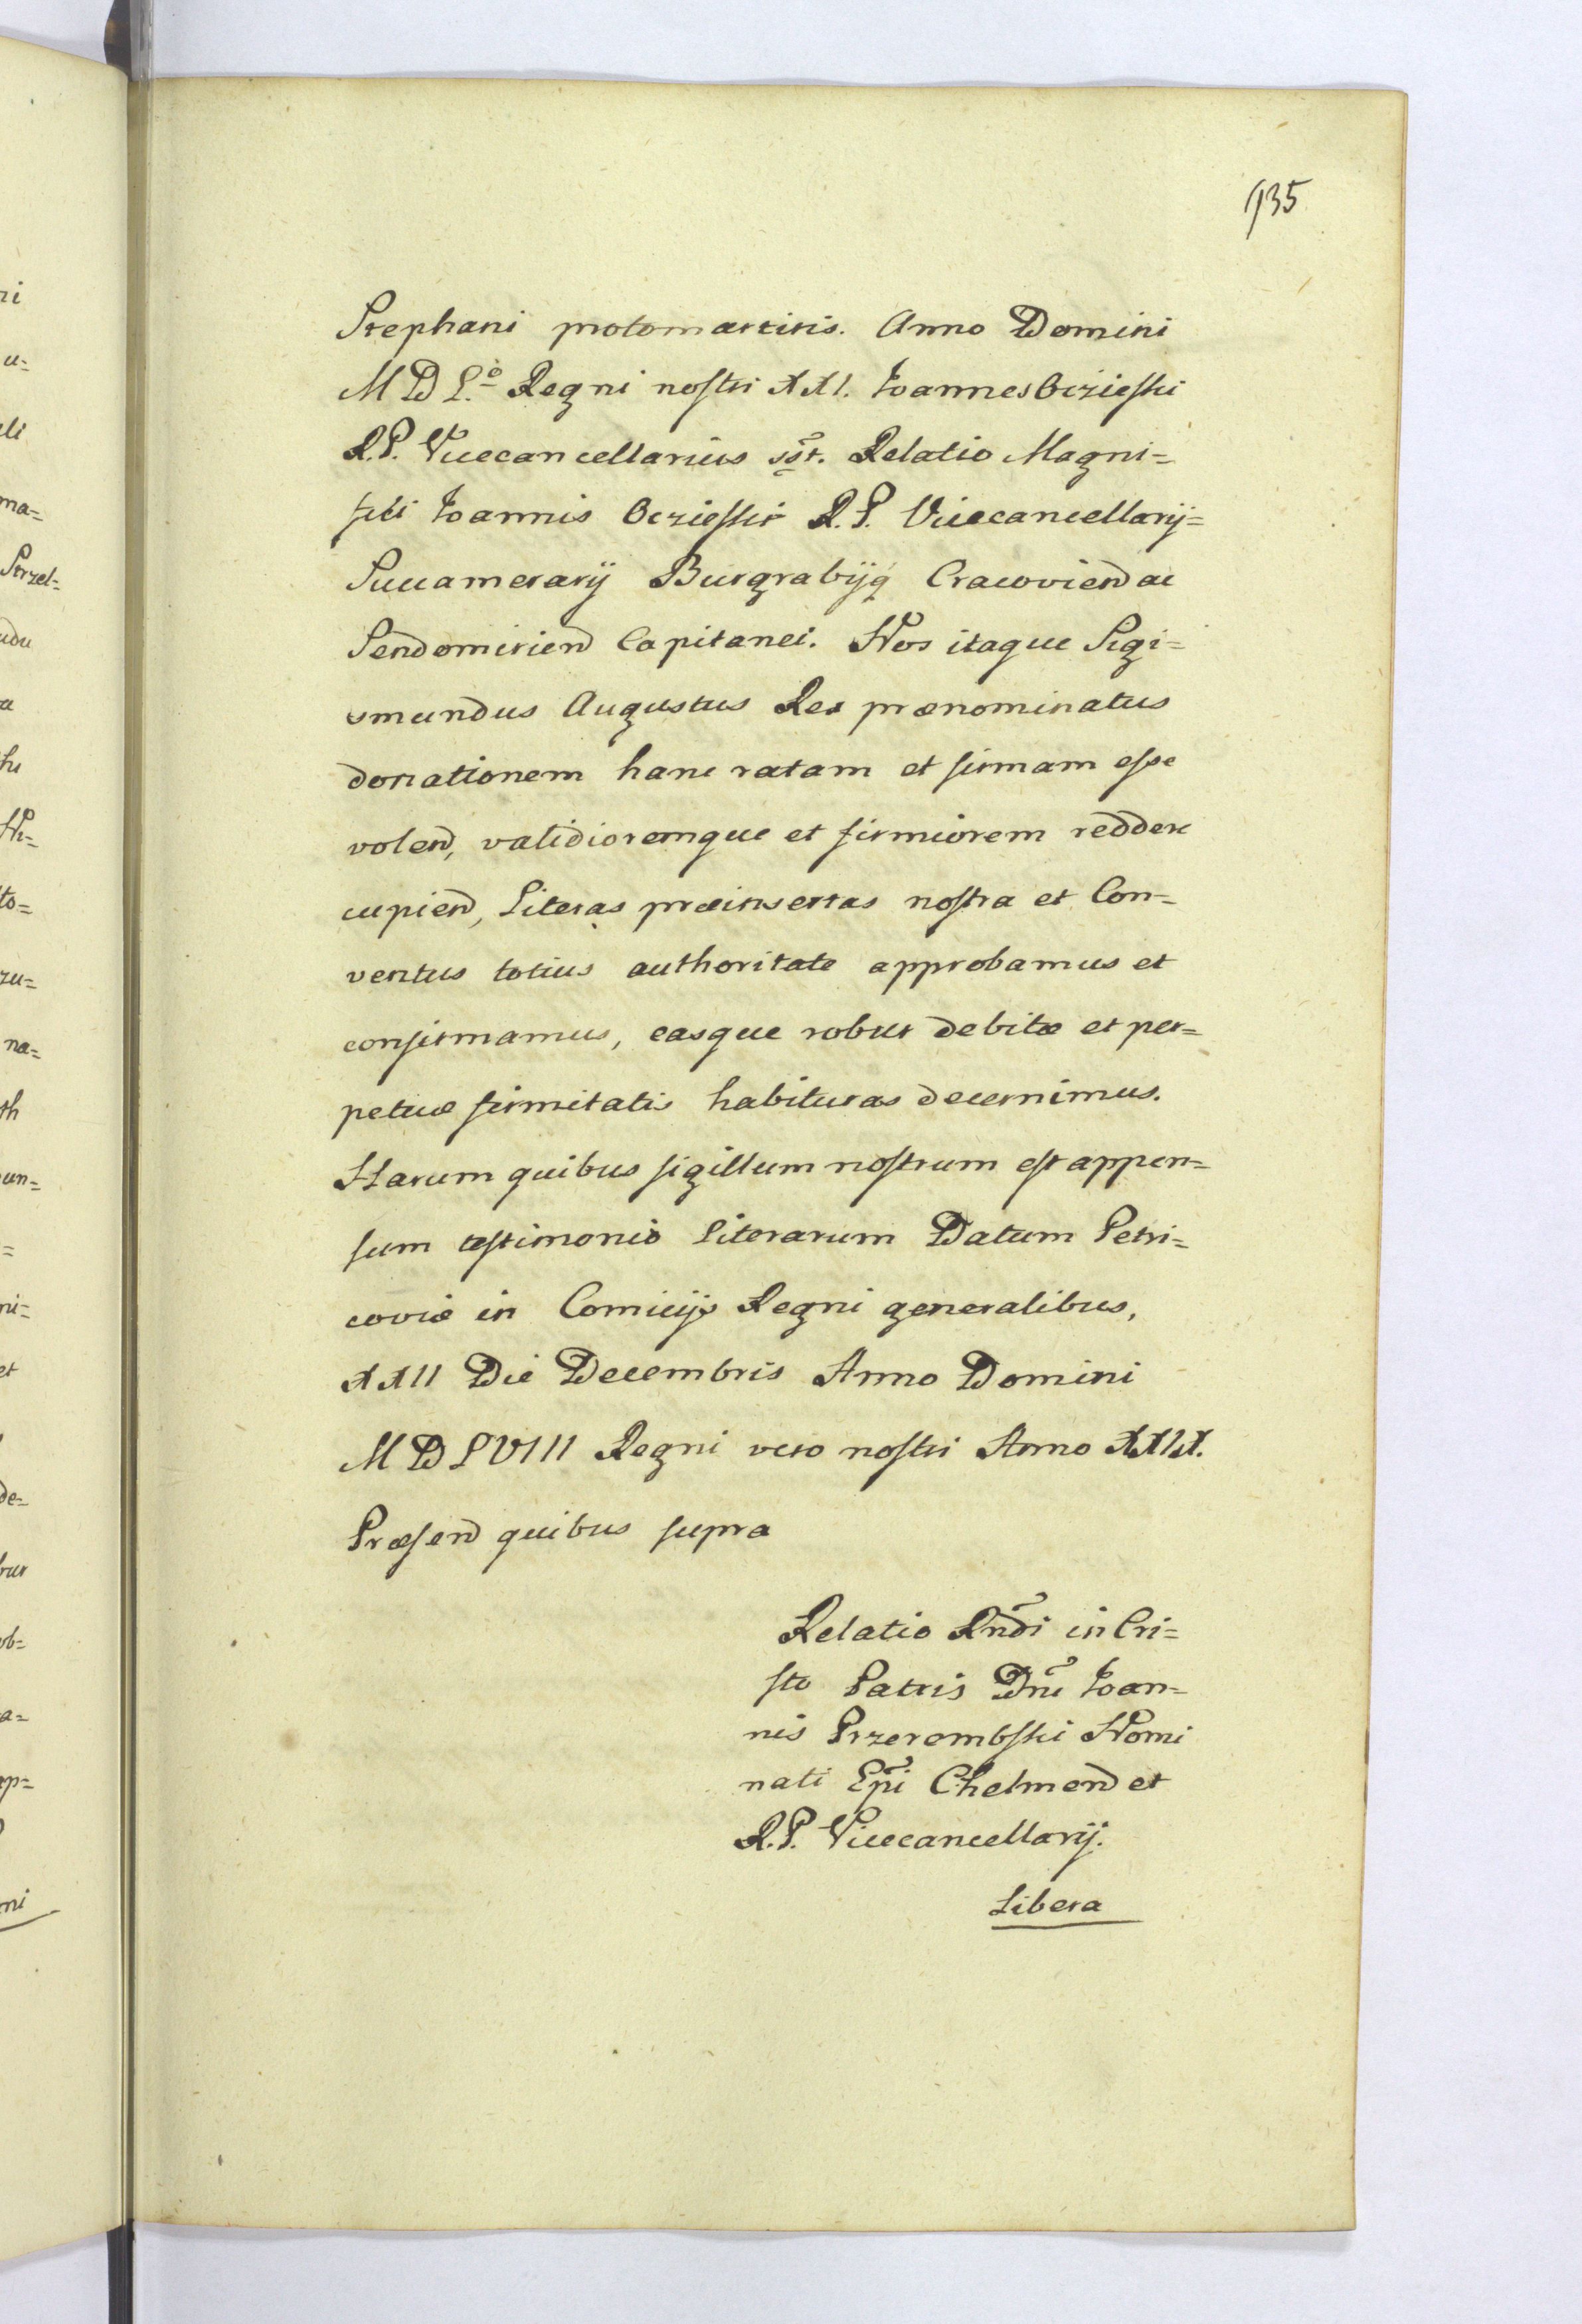 135
Stephani protomartiris. Anno Domini
M D L.º Regni nostri XXI. Ioannes Oczieski
R.P. Vicecancellarius sst. Relatio Magni=
fici Ioannis Ocziesski R.P. Vicecancellarij=
Succamerarij Burgrabijq Cracoviend ac
Sendomiriend Capitanei. Nos itaque Sigi=
smundus Augustus Rex prænominatus
donationem hanc ratam et firmam esse
volend, validioremque et firmiorem reddere
cupiend, Literas præinsertas nostra et Con=
ventus totius authoritate approbamus et
confirmamus, easque robur debitæ et per=
petuæ firmitatis habituras decernimus.
Harum quibus sigillum nostrum est appen=
sum testimonio Literarum Datum Petri=
coviæ in Comicijs Regni generalibus,
XXII Die Decembris Anno Domini
M D L VIII Regni vero nostri Anno XXIX.
Præsend quibus supra
Relatio Rndi in Cri=
sto Patris Dni Ioan=
nis Przerembski Nomi
nati Epi Chelmend et
R.P. Vicecancellarij.
Libera
ni
u=
eli
ma=
Strzel=
udu
a
hi
to=
zu=
na=
th
un=
=
ni=
et
de=
bur
ob=
a=
ap=
ni